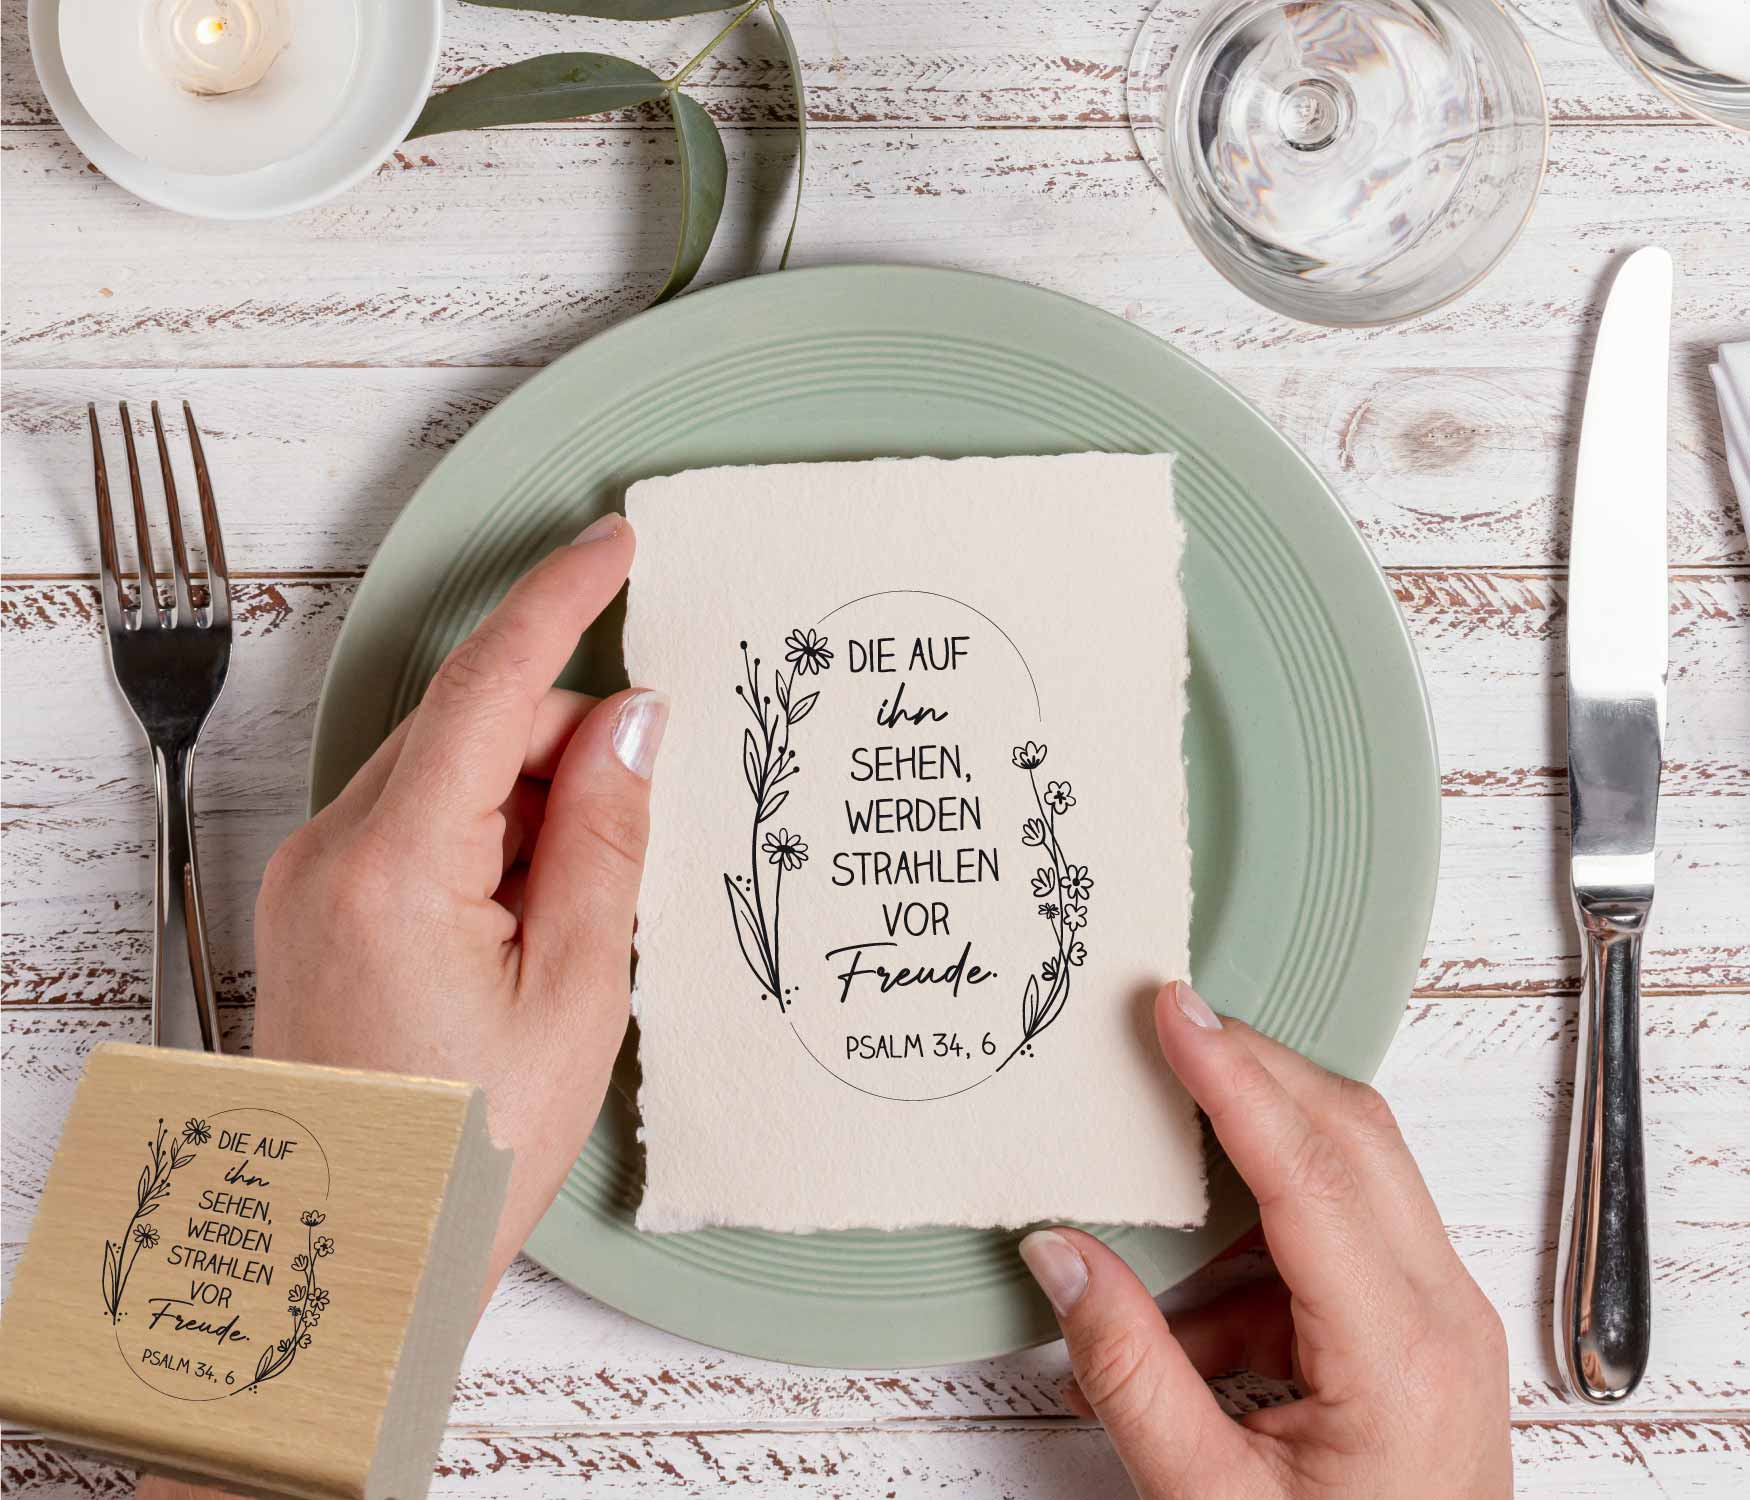 DIE AUF
ihn
SEHEN,
WERDEN
STRAHLEN
VOR
Freude.
PSALM 34, 6
DIE AUF
ihn
SEHEN,
WERDEN
STRAHLEN
VOR
Freude.
PSALM 34, 6